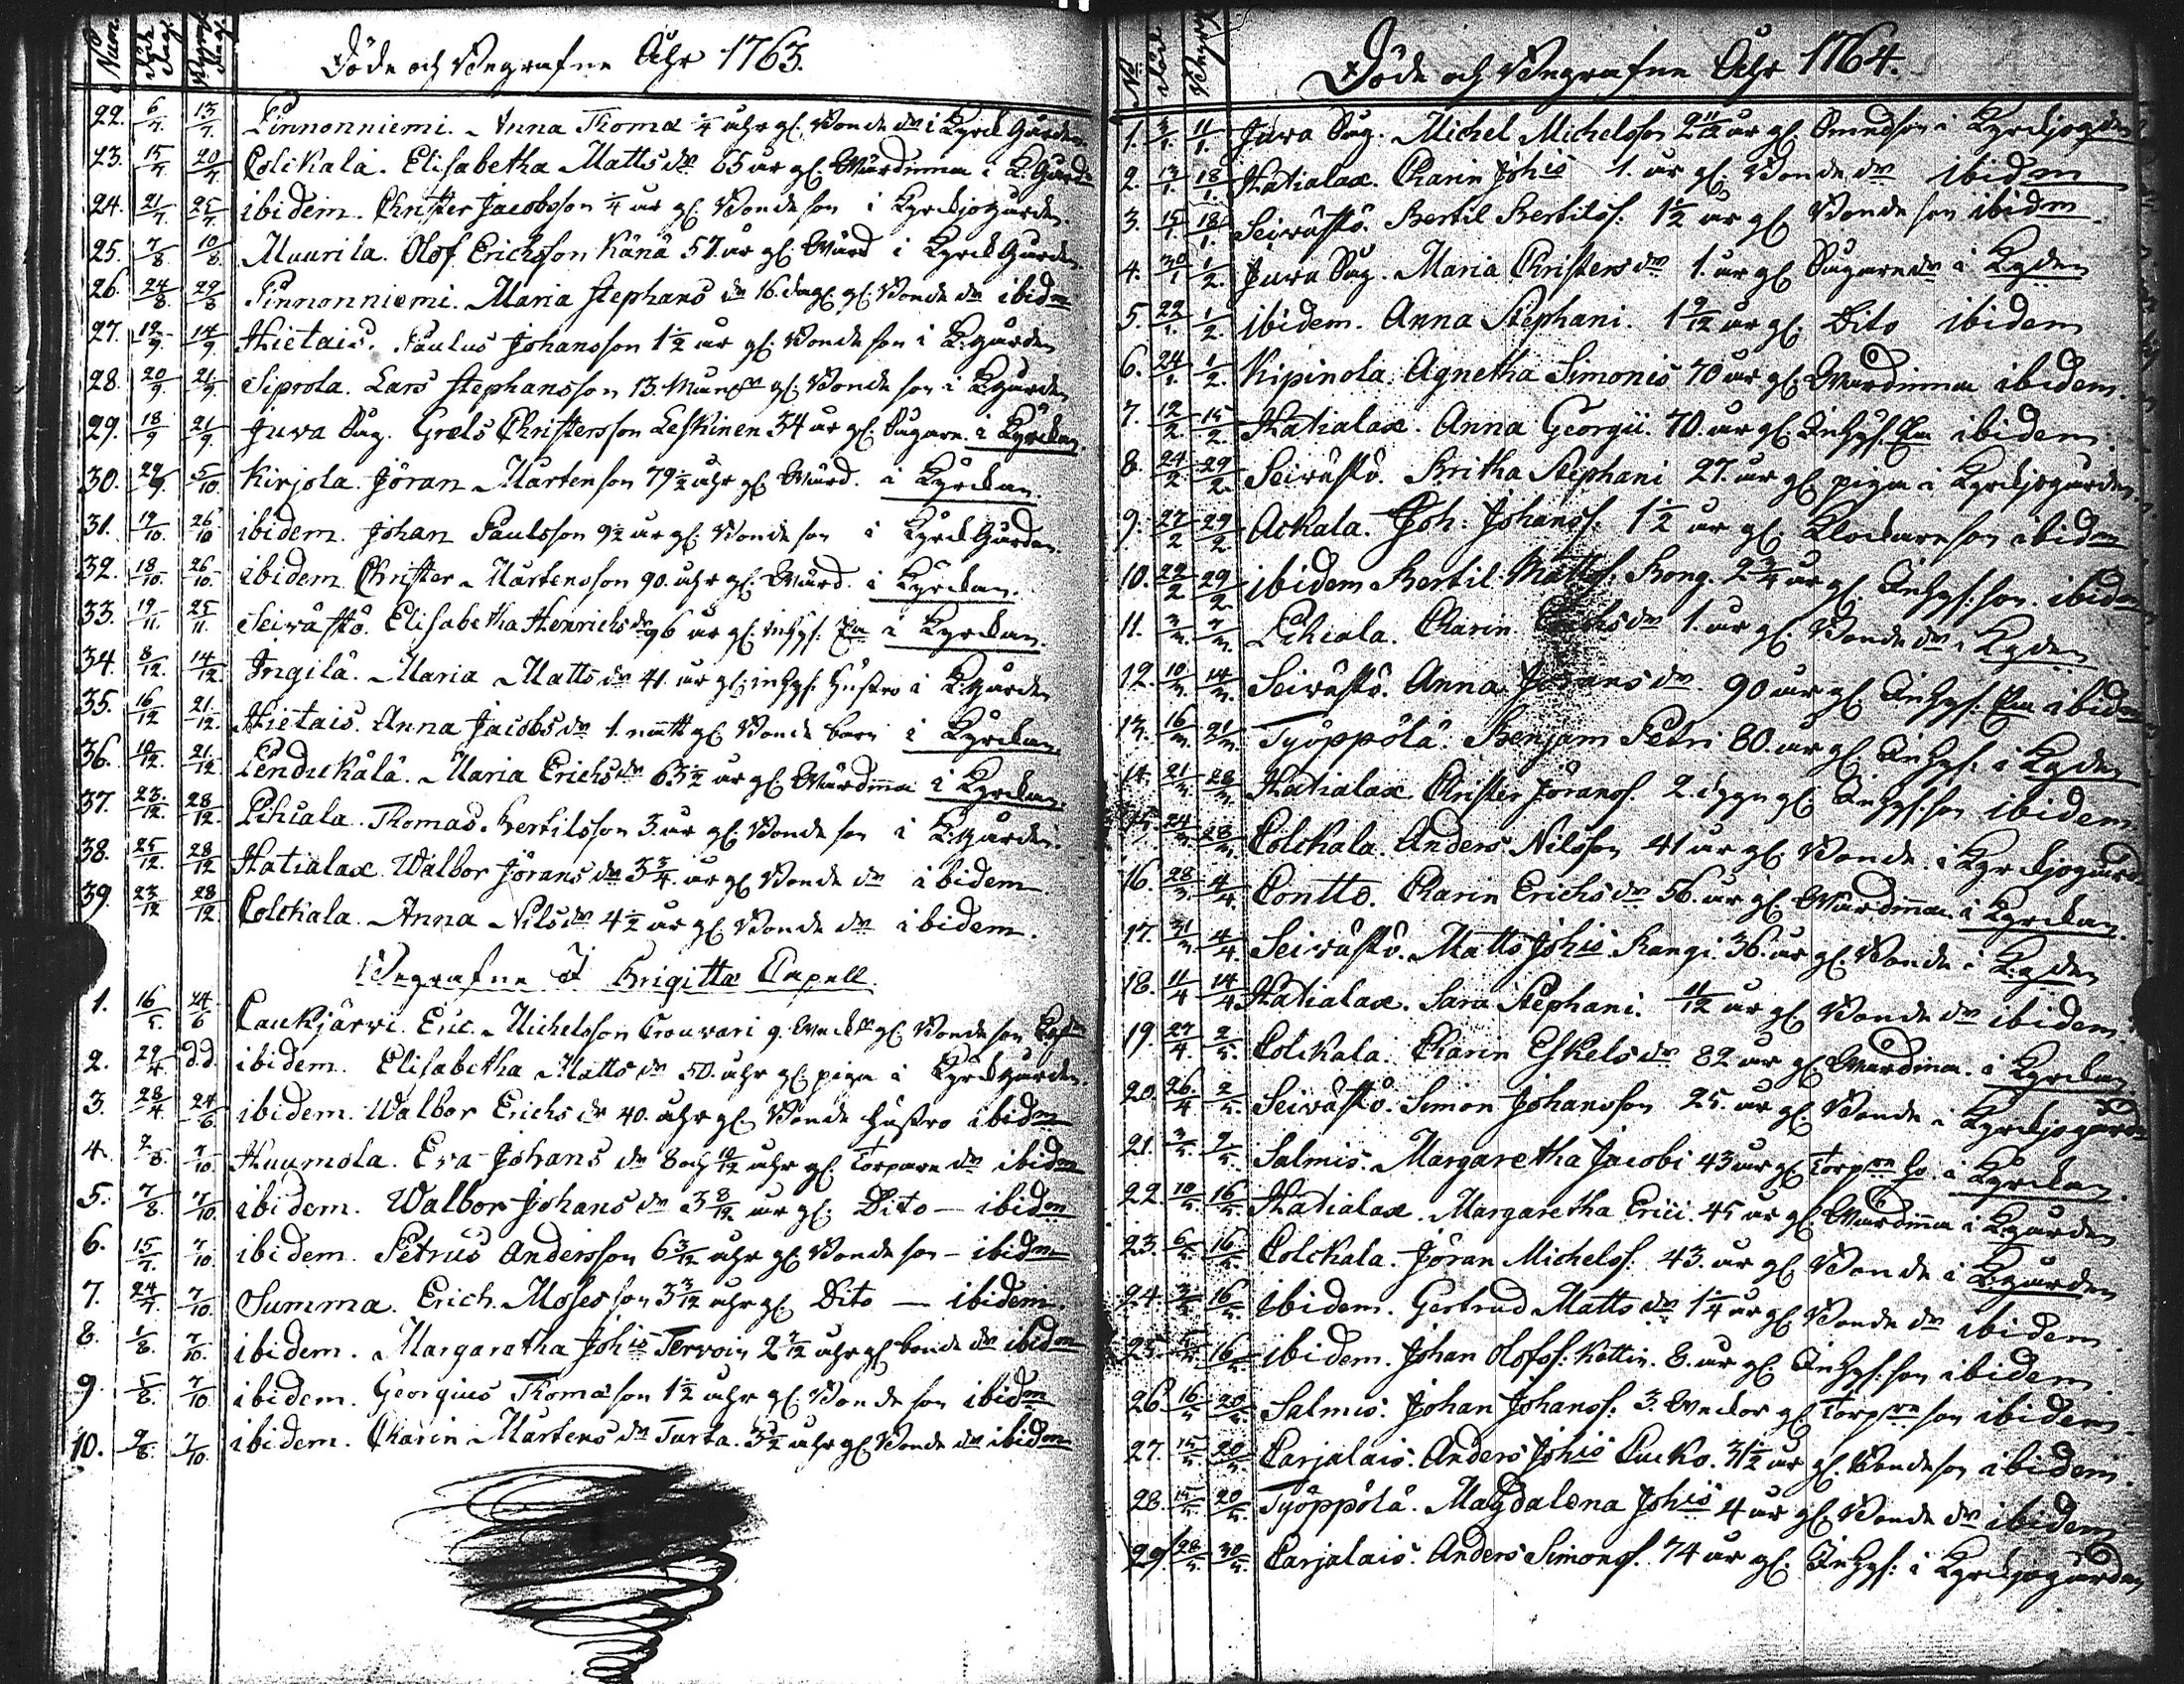 Num Död Dag Begrafn Dag
Döde och Begrafne Åhr 1763.
22. 6/7. 13/7. Pinnonniemi. Anna Thomæ 1/4 åhr gl. Bonde dr i Kyrck Gården
23. 15/7 20/7 Colckala. Elisabetha Matts dr 65 år gl. Wärdinna i K. Gården
24. 21/7. 25/7. ibidem. Christer Jacobsson 1/4 år gl. Bonde son i Kyrckjogården.
25. 7/8. 10/8. Muurila. Olof Erichsson Känä 57. år gl. Wärd i Kyrck Gården.
26. 24/8. 29/8 Pinnonniemi. Maria Stephans dr 16. dag. gl. Bonde dr ibidm
27. 12/9. 14/9. Hietais. Paulus Johansson 1 1/2 år gl. Bonde son i K. gården
28. 20/9. 21/9. Siprola. Lars Stephansson 13. Mån. gl. Bonde son i Kgården
29. 18/9 21/9. Juwa Såg. Grels Christersson Leskinen 34 år gl. Sågare. i Kyrckan.
30. 29/9. 5/10. Kirjola. Jöran Mårtenson 79 1/2 åhr gl. Wärd. i Kyrckan.
31. 19/10. 26/10 ibidem. Johan Paulsson 9 1/2 år gl. Bonde son i Kyrck Gården.
32. 18/10. 26/10. ibidem Christer Mårtensson 90. åhr gl. Wärd. i Kyrckan.
33. 19/11. 25/11. Seivästö. Elisabetha Henrichs dr 96 år gl. inhys. Ea i Kyrckan.
34. 8/12. 14/12 Ingilä. Maria Matts dr 41. år gl. inhys. hustro i K. gården
35. 16/12 21./12. Hietais. Anna Jacobs dr 1. natt gl. Bonde barn i Kyrckan
36. 18/12. 21./12 Pendickälä. Maria Erichs dr 63 1/2 år gl. Wärdinna i Kyrckan.
37. 23/12. 28/12. Pihiala. Thomas Bertilsson 3. år gl. Bonde son i K. gården.
38. 25/12. 28/12 Hatialax. Walbor Jörans dr 3 3/4. år gl. Bonde dr ibidem.
39. 23/12 28/12. Colckala. Anna Nils dr 4 1/2 år gl. Bonde dr ibidem.
Begrafne I Brigittæ Capell.
1. 16/5. 24/6 Caukjärvi. Eric Michelsson Crouvari 9. Weck gl. Bonde son
2. 29/4. d.d. ibidem. Elisabetha Matts dr 50. åhr gl. piga i Kyrckgården.
3. 28/4 24/6 ibidem. Walbor Erichs dr 40. åhr gl. Bonde hustro ibidm
4. 7/8. 7/10. Huumola. Eva Johans dr 8 och 10/12 åhr gl. Torpare dr ibidm
5. 7/8. 7/10. ibidem. Walbor Johans dr 3 8/12. år gl. Dito — ibidm
6. 15/7. 7/10. ibidem. Petrus Andersson 6 3/12 åhr gl. Bonde son — ibidm
7. 24/7. 7/10. Summa. Erich Mosesson 3 3/12 åhr gl. Dito — ibidem.
8. 1/8. 7/10. ibidem. Margaretha Johis Tervoin 2 7/12 åhr gl. bonde dr ibidm
9. 5/8. 7/10 ibidem. Georgius Thomæson 1 1/2 åhr gl. Bonde son ibidm
10. 9/8. 7/10. ibidem. Charin Mårtens dr Turta. 3 1/2 åhr gl. Bonde dr ibidm
No Död Begrafn
Döde och Begrafne Åhr 1764.
1. 3/1. 11/1. Juwa Såg. Michel Michelsson 2 11/12 år gl. Smedson i Kyrckjogden
2. 13/1. 18/1. Hatialax. Charin Johis 1. år gl. Bonde dr ibidm
3. 15/1. 18/1. Seivästö. Bertil Bertilss. 1 1/2 år gl. Bonde son ibidm
4. 30/1 1/2. Juwa Såg. Maria Christers dr 1. år gl. Sågare dr i Kgden
5. 22/1. 1/2. ibidem. Anna Stephani. 1 9/12 år gl. Dito ibidem
6. 24/1. 1/2. Kipinola. Agnetha Simonis 70 år gl. Wärdinna ibidem.
7. 12/2. 15/2. Hatialax. Anna Georgii. 70. år gl. Inhys. Ea ibidem.
8. 24/2. 29/2. Seivästö. Britha Stephani 27. år gl. piga i Kyrckjogården.
9. 27/2 29/2. Ackala. Joh: Johanss. 1 1/2 år gl. Klockareson ibidm
10. 22/2 29/2. ibidem Bertil Mattss. Kong. 2 3/4 år gl. Inhys. son. ibidm
11. 3/3. 7/3. Pihiala. Charin dr 1. år gl. Bonde dr i Kgden
12. 10/3. 14/3. Seivästö. Anna Jörans dr 90 år gl. Inhys. Ea ibidm
13. 16/3. 21/3. Työppölä. Benjam Petri 80. år gl. Inhys. i Kgden
14. 21/3. 28/3. Hatialax Christer Jöranss. 2. dygn gl. Inhys. son ibidem.
15. 24/3. 28/3. Colckala. Anders Nilsson 41 år gl. Bonde i Kyrckjogård
16. 28/3 4/4 Contto. Charin Erichs dr 56. år gl. Wärdinna i Kyrckan.
17. 31/3 4/4. Seivästö. Matts Johis Kangi. 36. år gl. Bonde i Kgden
18. 11/4 14/4 Hatialax. Sara Stephani. 11/12 år gl. Bonde dr ibidem.
19. 27/4. 2/5. Colckala. Charin Eskels dr 82 år gl. Wärdinna. i Kyrckan
20. 26/4 2/5. Seivästö. Simon Johansson 25. år gl. Bonde i Kyrckjogården
21. 3/5. 9/5. Salmis. Margaretha Jacobi 43 år gl. Torpre ho. i Kyrckan.
22. 10/5. 16/5. Hatialax. Margaretha Erici. 45 år gl. Wärdinna i Kgården
23. 6/5. 16/5. Colckala. Jöran Michelss. 43. år gl. Bonde i Kgården
24. 3/5. 16/5. ibidem. Gertrud Matts dr 1 1/4 år gl. Bonde dr ibidem
25. 5/5. 16/5. ibidem. Johan Olofss. Kottin. 8. år gl. Inhys. son ibidem.
26. 16/5 20/5. Salmis. Johan Johanss. 3. Weckor gl. Torpre son ibidem.
27. 15/5. 20/5. Carjalais. Anders Johis Cucko. 3 1/2 år gl. Bondeson ibidem.
28. 15/5. 20/5. Työppölä. Magdalena Johis 4 år gl. Bonde dr ibidem
29. 28/5. 30/5. Carjalais. Anders Simonss. 74 år gl. Inhys. i Kyrckjogården